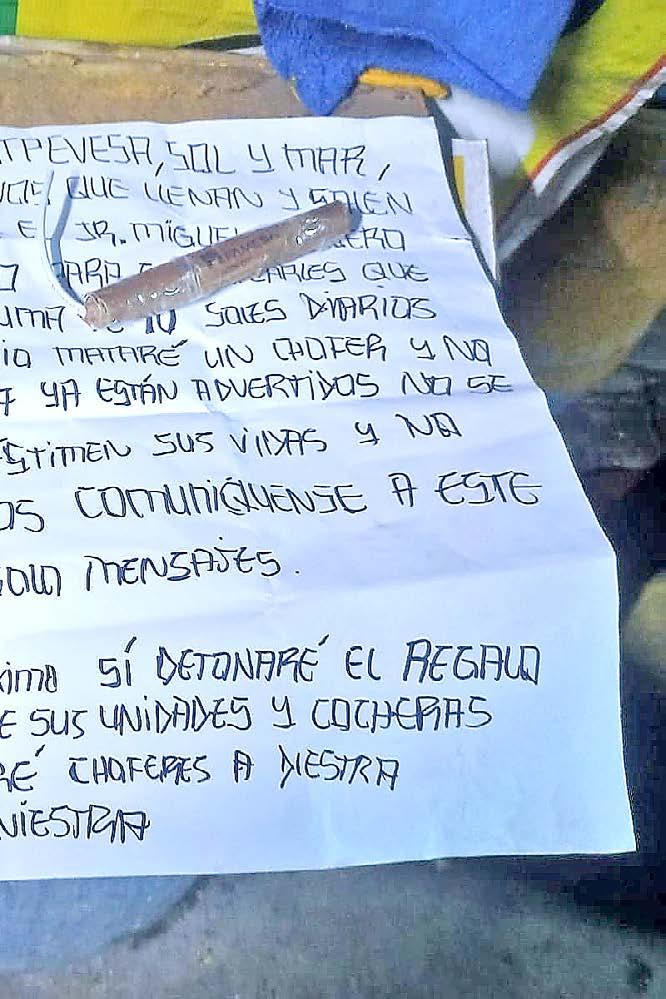 TPEVESA, SOL Y MAR,
QUE LLENAN Y SALEN
E JR. MIGUEL
PARA QUE
UMA 10 SOLES DIARIOS
MATARÉ UN CHOFER Y NO
YA ESTÁN ADVERTIDOS NO SE
STIMEN SUS VIDAS Y NO
OS COMUNÍQUENSE A ESTE
SOLO MENSAJES.
XIMA SÍ DETONARÉ EL REGALO
E SUS UNIDADES Y COCHERAS
RÉ CHOFERES A DIESTRA
NIESTRA